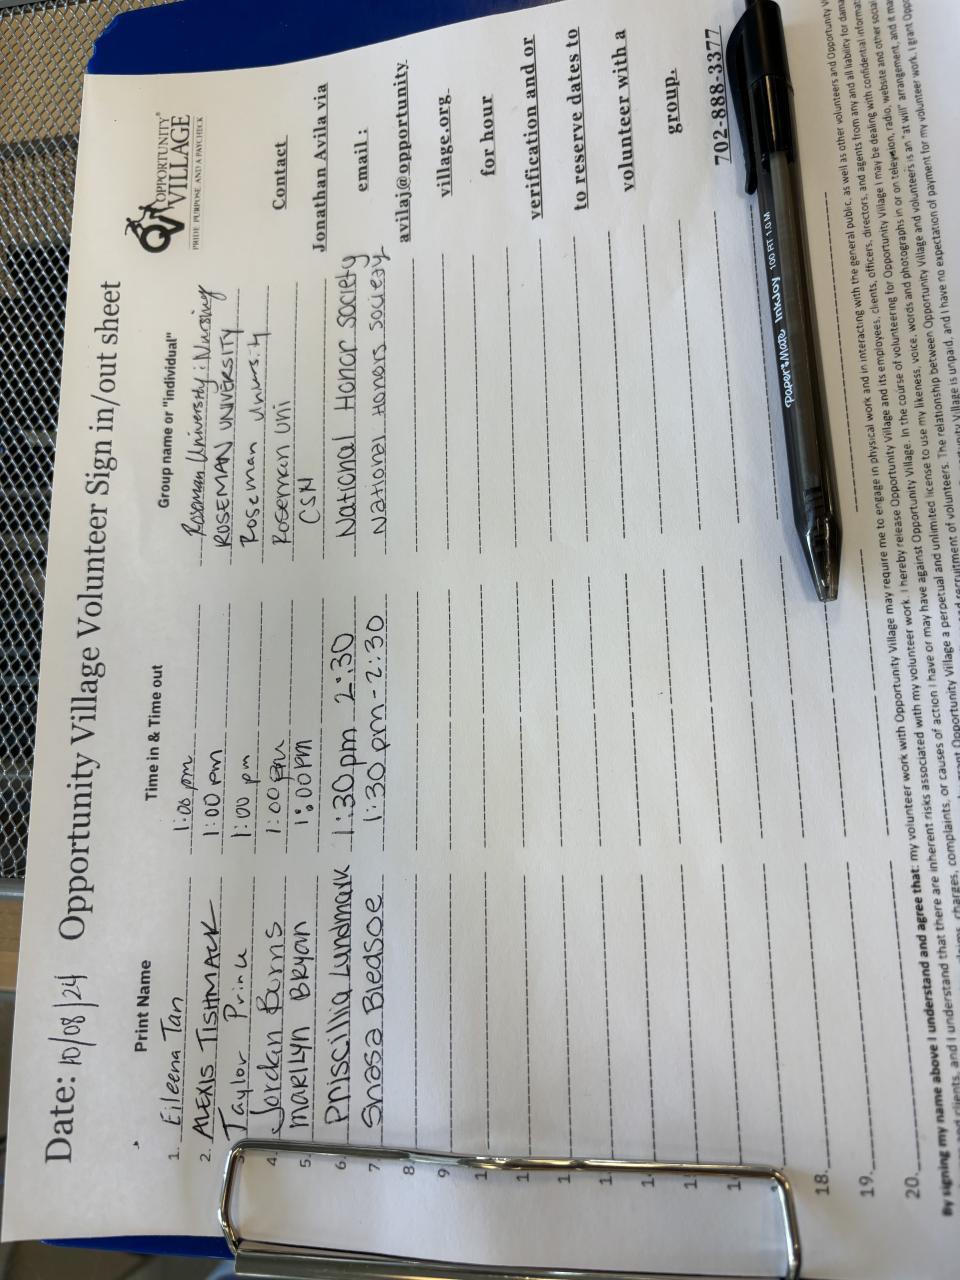 Date: 10/08/24 Opportunity Village Volunteer Sign in/out sheet
OPPORTUNITY
VILLAGE
PRIDE PURPOSE AND A PAYCHECK
Print Name Time in & Time out Group name or "individual"
1. Eileena Tan 1:00 pm Roseman University: Nursing
2. ALEXIS TISHMACK 1:00 pm ROSEMAN UNIVERSITY
3. Taylor Prince 1:00 pm Roseman University
4. Jordan Burns 1:00 pm Roseman Uni
5. MARILYN BRYAN 1:00PM CSN
6. Priscillia Lundmark 1:30pm 2:30 National Honor Society
7. Shasa Bledsoe 1:30pm-2:30 National Honors Society
8.
9
1
1
1
1
1
1
1
18.
19.
20.
Contact
Jonathan Avila via
email:
avilaj@opportunity
village.org.
for hour
verification and or
to reserve dates to
volunteer with a
group.
702-888-3377
PaperMate InkJoy 100 RT 1.0 M
By signing my name above I understand and agree that: my volunteer work with Opportunity Village may require me to engage in physical work and in interacting with the general public, as well as other volunteers and Opportunity
clients, and I understand that there are inherent risks associated with my volunteer work. I hereby release Opportunity Village and its employees, clients, officers, directors, and agents from any and all liability for
claims, charges, complaints, or causes of action I have or may have against Opportunity Village. In the course of volunteering for Opportunity Village I may be dealing with confidential
grant Opportunity Village a perpetual and unlimited license to use my likeness, voice, words and photographs in or on television, radio, website and other
and recruitment of volunteers. The relationship between Opportunity Village and volunteers is an "at will" arrangement, and it
Village is unpaid, and I have no expectation of payment for my volunteer work. I grant